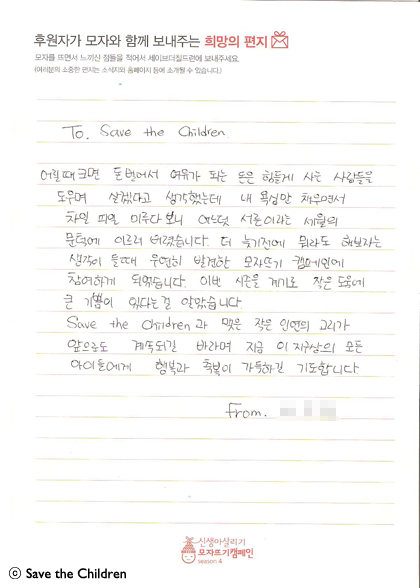 후원자가 모자와 함께 보내주는 희망의 편지
모자를 뜨면서 느끼신 점들을 적어서 세이브더칠드런에 보내주세요.
(여러분의 소중한 편지는 소식지와 홈페이지 등에 소개될 수 있습니다.)
To. Save the Children
어릴때 크면 돈벌어서 여유가 되는 돈은 힘들게 사는 사람들을
도우며 살겠다고 생각했는데 내 욕심만 채우면서
차일 피일 미루다 보니 어느덧 서른이라는 세월의
문턱에 이르러 버렸습니다. 더 늦기전에 뭐라도 해보자는
생각이 들때 우연히 발견한 모자뜨기 캠페인에
참여하게 되었습니다. 이번 시즌을 계기로 작은 도움에
큰 기쁨이 있다는걸 알았습니다.
Save the Children과 맺은 작은 인연의 고리가
앞으로도 계속되길 바라며 지금 이 지구상의 모든
아이들에게 행복과 축복이 가득하길 기도합니다.
From.
신생아살리기
모자뜨기캠페인
season 4
ⓒ Save the Children